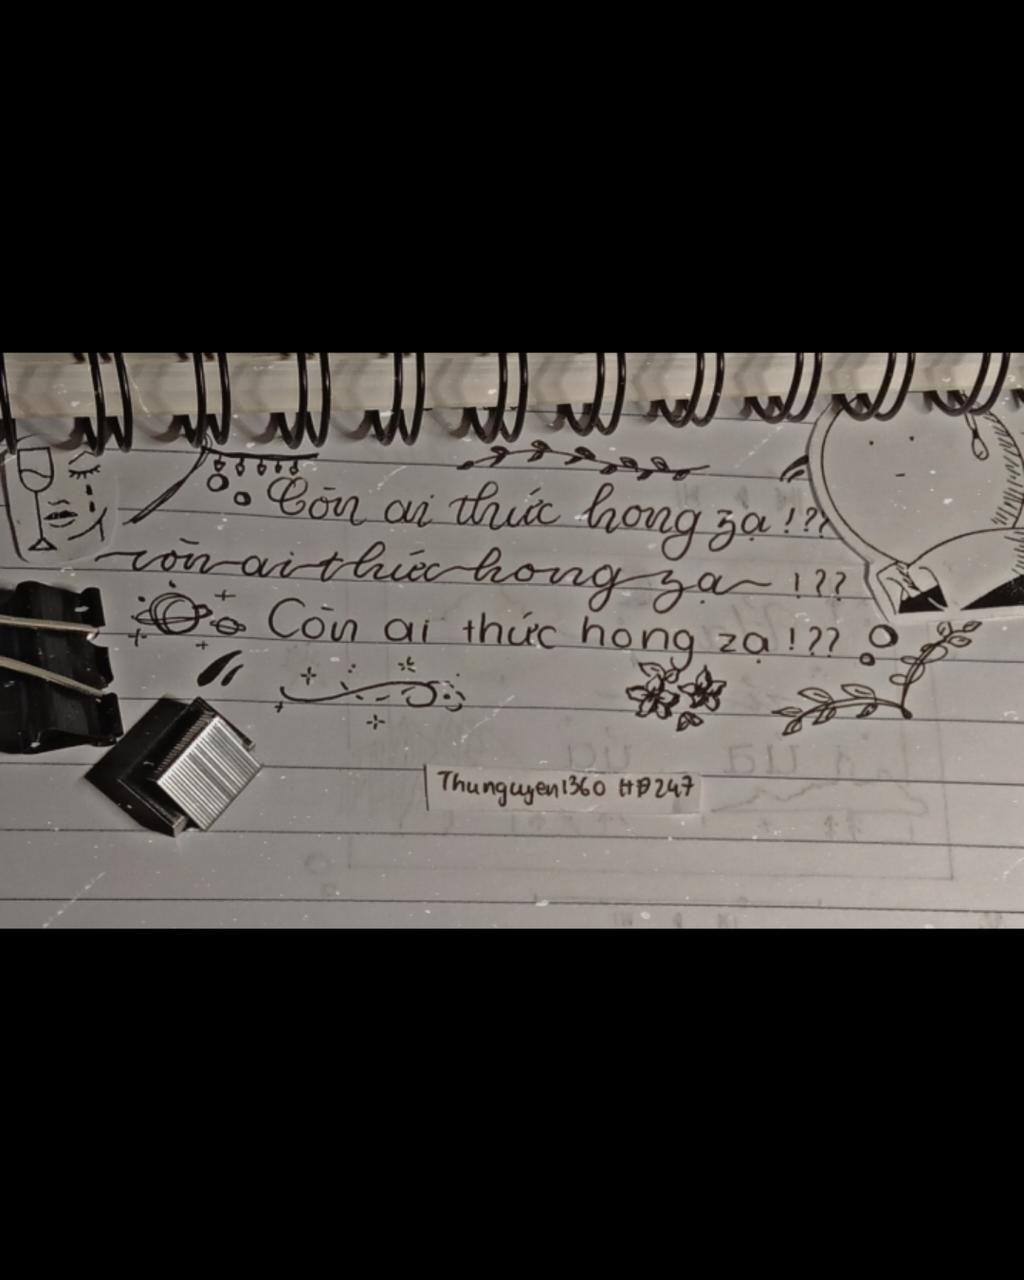 Còn ai thức hong zạ!??
còn ai thức hong zạ !??
Còn ai thức hong zạ!??
Thunguyen1360 HĐ247